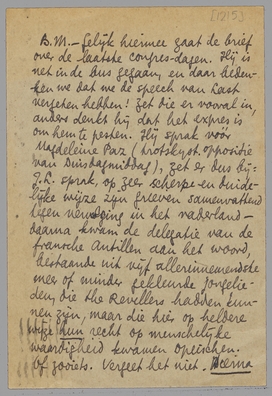 [1215]
B.M. – Gelijk hiermee gaat de brief
over de laatste congres-dagen. Hij is
net in de bus gegaan, en daar beden-
ken we dat we de speech van Last
vergeten hebben! Zet die er vooral in,
anders denkt hij dat het expres is
om hem te pesten. Hij sprak vóór
Magdeleine Paz (trotskyst. oppositie
van Dinsdagmiddag), zet er dus bij:
J.L. sprak, op zeer scherpe en duide-
lijke wijze zijn grieven samenvattend
tegen in het vaderland –
daarna kwam de delegatie van de
fransche Antillen aan het woord,
bestaande uit vijf allerinnemendste
meer of minder gekleurde jongelie-
den, die the Revellers hadden kun-
nen zijn, maar die hier op heldere
wijze hun recht op menschelijke
waardigheid kwamen opeischen.
Of zooiets. Vergeet het niet.